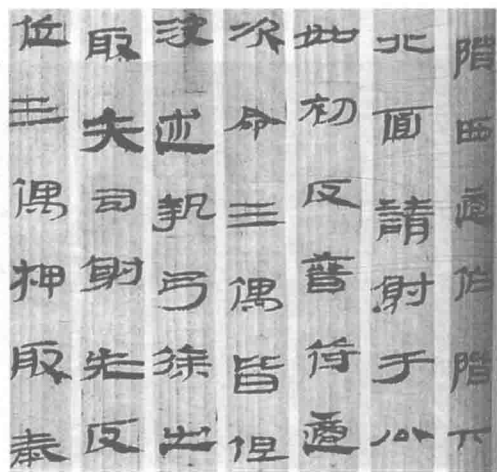 階西適伯階下
北面請射于公
如初反晉適
次命三偶皆但
決述執弓徐出
取矢司射先反
位三偶取